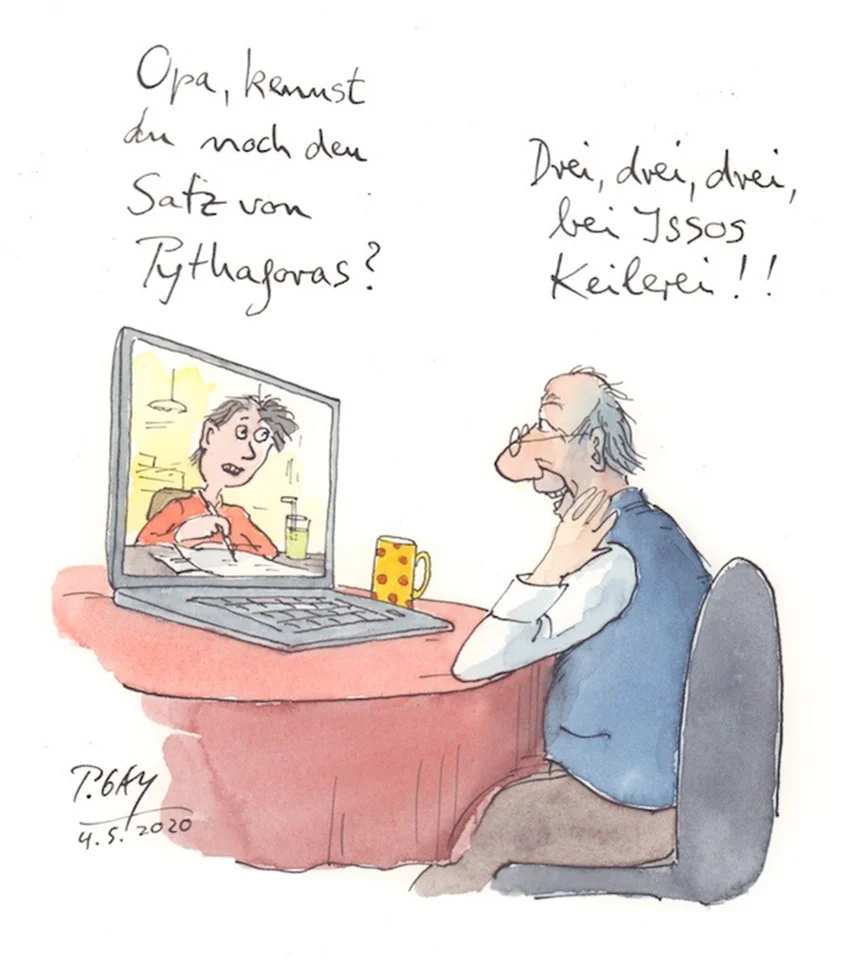 Opa, kennst
du noch den
Satz von
Pythagoras?
Drei, drei, drei,
bei Issos
Keilerei!!
P. GAY
4.5.2020